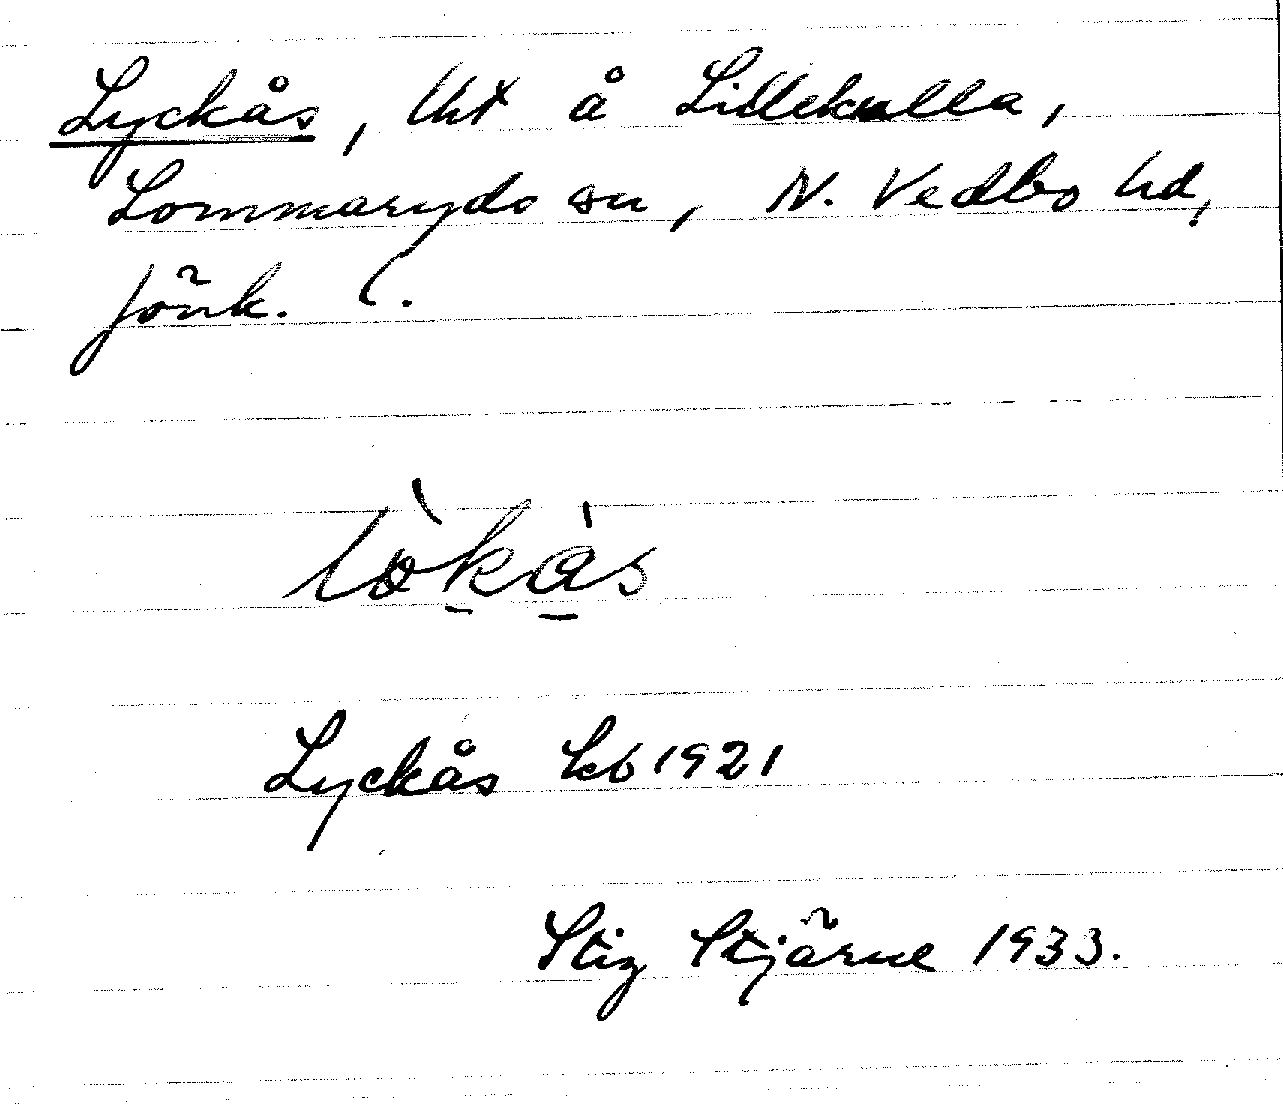 Lyckås, lht å Lillekulla,
Lommaryds sn, N. Vedbo hd,
Jönk. l.
lò̀kås
Lyckås kb 1921
Stig Stjärne 1933.